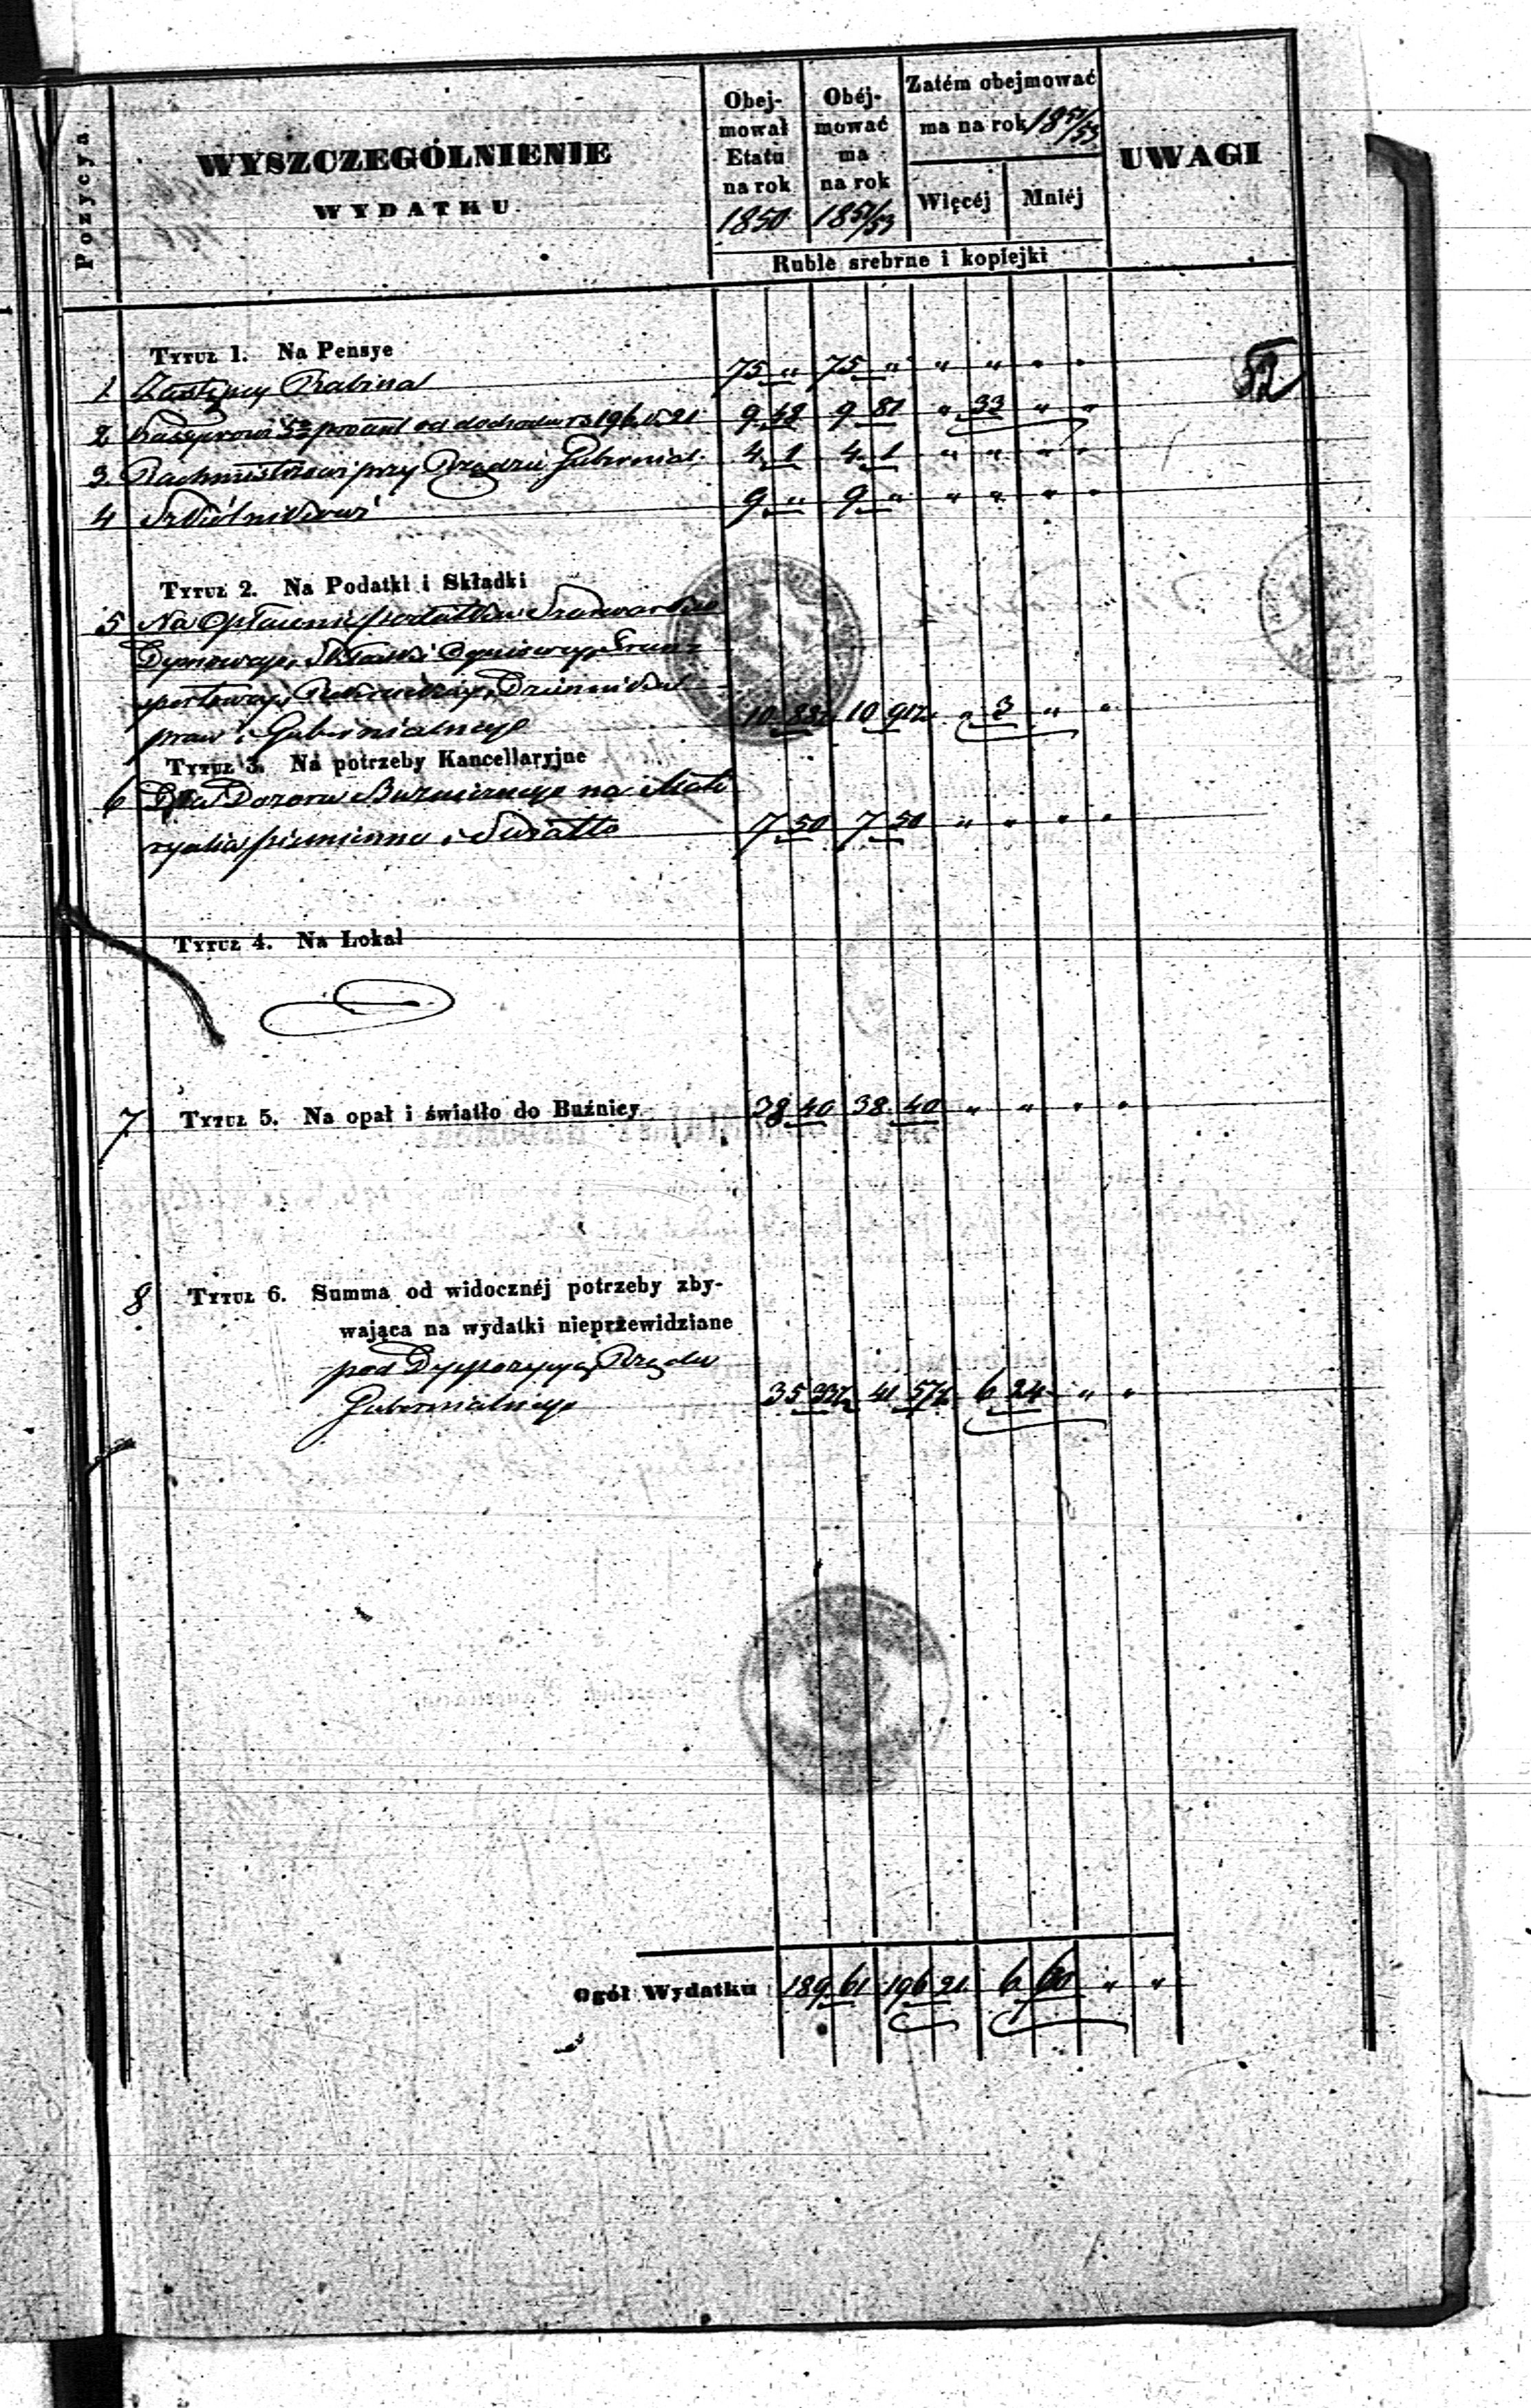 Pozycya
WYSZCZEGÓLNIENIE
WYDATKU
Obejmował Etatu na rok 1850
Obéjmować ma na rok 1851/53
Zatém obejmować ma na rok 1851/53
Więcéj Mniéj
UWAGI
Ruble srebrne i kopiejki
52
Tytuł 1. Na Pensye
1 Zastępcy Rabina 75 " 75 " " " " "
2 Kassyerowi 5% procent od dochodu rs 196 k. 21 9 48 9 81 " 33 " "
3 Rachmistrzowi przy Rządzie Gubernial. 4 1 4 1 " " " "
4 Szkólnikowi 9 " 9 " " " " "
Tytuł 2. Na Podatki i Składki
5 Na Opłacenie podatków Szarwarku
Dymowego, Składki Ogniowey, Trans-
portowey, Dziennika
praw i Gubernialnego 10 88½ 10 91½ " 3 " "
Tytuł 3. Na potrzeby Kancellaryjne
6 Dla Dozoru Bużniczego na Mate
ryalia piśmienne i Swiatło 7 50 7 50 " " " "
Tytuł 4. Na Lokal
7 Tytuł 5. Na opał i światło do Buźnicy 38 40 38 40 " " " "
8 Tytuł 6. Summa od widocznéj potrzeby zby-
wająca na wydatki nieprzewidziane
pod Dyspozycyą Rządu
Gubernialnego 35 33½ 41 57½ 6 24 " "
Ogół Wydatku 189 61 196 21 6 60 " "